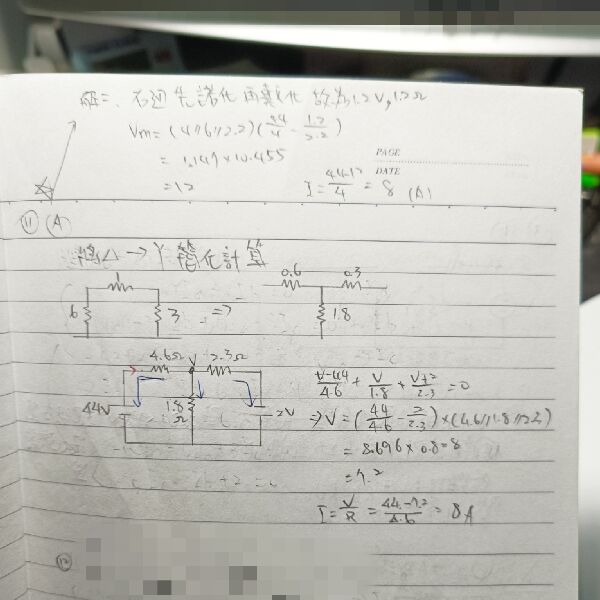 右邊先諾化再戴化 故為1.2V,1.2Ω
Vm=(4//6//2.2)(44/4 - 1.2/2.2)
= 1.147×10.455
PAGE
DATE
=12
I=44-12/4 = 8 (A)
⑪ (A)
將△→Y 替化計算
1
6
3
=>
0.6
0.3
1.8
4.6Ω
V
2.3Ω
44V
1.8Ω
2V
V-44/4.6 + V/1.8 + V+2/2.3 =0
=>V=(44/4.6 - 2/2.3)×(4.6//1.8//2.3)
= 8.696×0.828
=7.2
I=V/R = 44-7.2/4.6 = 8A
⑫